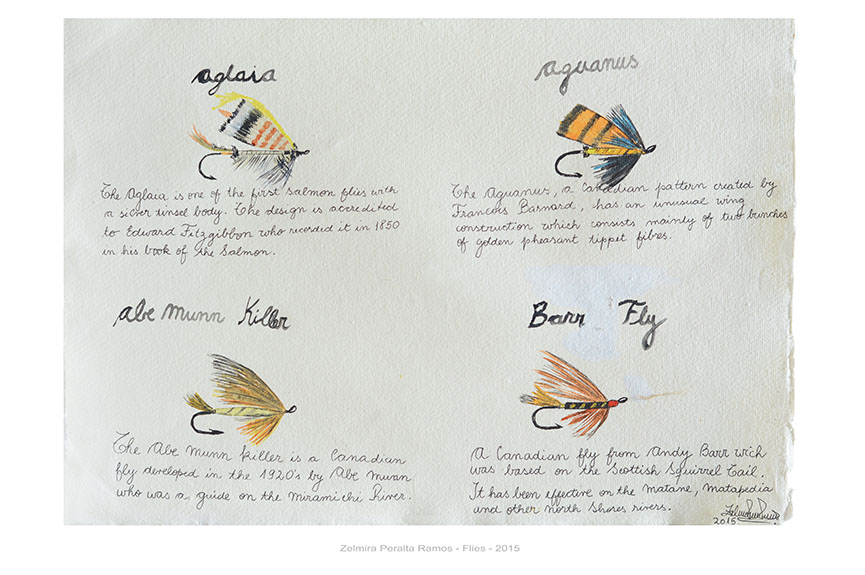 aglaia
The Aglaia is one of the first salmon flies with
a silver tinsel body. The design is accredited
to Edward Fitzgibbon who recorded it in 1850
in his book of the Salmon.
aguanus
The Aguanus, a Canadian pattern created by
Francois Barnard, has an unusual wing
construction which consists mainly of two bunches
of golden pheasant tippet fibres.
abe munn Killer
The Abe Munn Killer is a Canadian
fly developed in the 1920's by Abe Munn
who was a guide on the Miramichi River.
Barr Fly
A Canadian fly from Andy Barr wich
was based on the Scottish Squirrel Tail.
It has been effective on the Matane, Matapedia
and other North Shores rivers.
2015
Zelmira Peralta Ramos - Flies - 2015